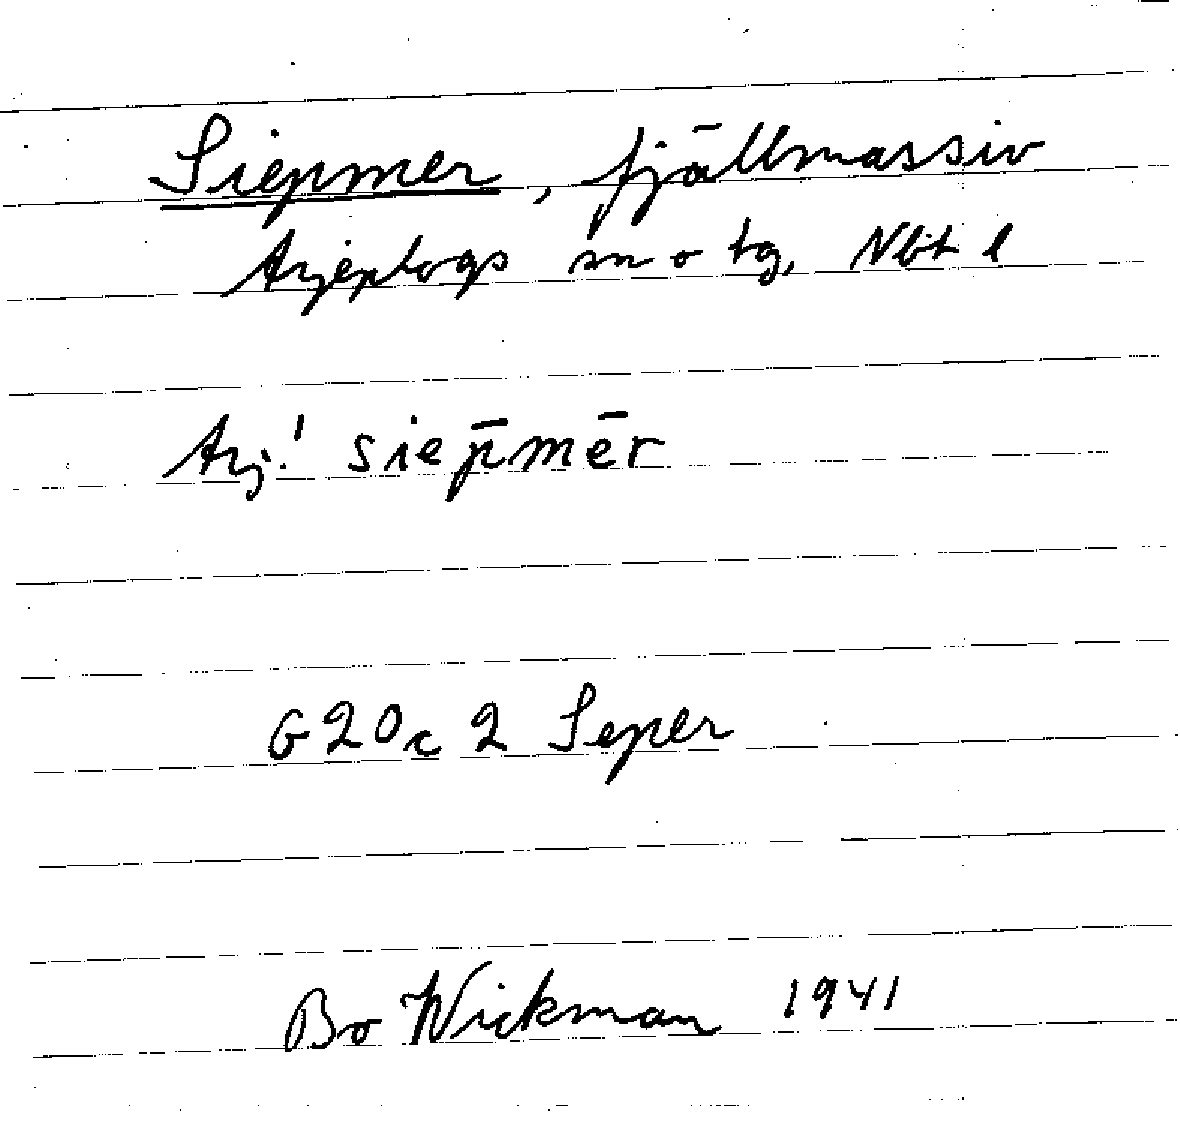 Siepmer, fjällmassiv
Arjeplogs sn o tg, Nbt l
Arj.! siep̄mēr
G20c 2 Seper
Bo Wickman 1941